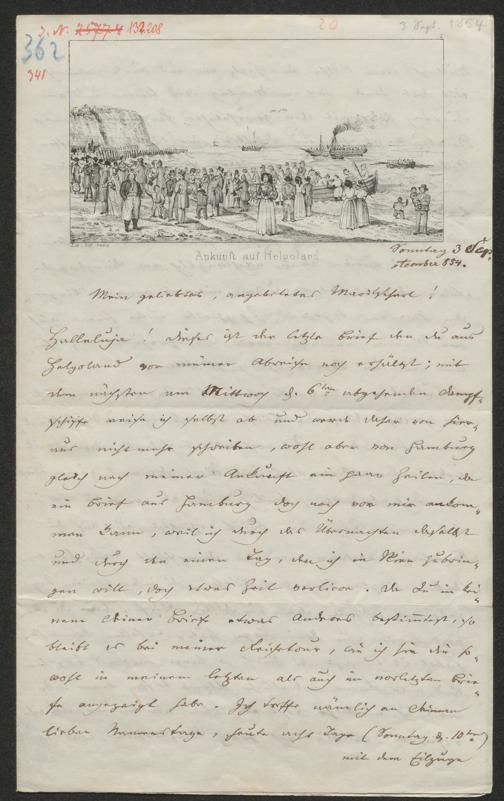 J. N. 25774 132.208
20
3 Sept. 1854
362
341
Ankunft auf Helgoland
Sonntag 3 Sep-
tember 854.
Mein geliebtes, angebetetes !
Halleluja! dieses ist der letzte Brief den du aus
Helgoland vor meiner Abreise noch erhältst; mit
dem nächsten am Mittwoch d. 6ten abgehenden Dampf-
schiffe reise ich selbst ab und werde daher von hier
aus nicht mehr schreiben, wohl aber von Hamburg
gleich nach meiner Ankunft ein paar Zeilen, da
ein Brief aus Hamburg doch noch vor mir ankom-
men kann, weil ich durch das Übernachten daselbst
und durch den einen Tag, den ich in zubrin-
gen will, doch etwas Zeit verliere. Da Du in kei-
nem Deiner Briefe etwas Anderes bestimmtest, so
bleibt es bei meiner Reisetour, wie ich sie dir so-
wohl in meinem letzten als auch im vorletzten Brie-
fe angezeigt habe. Ich treffe nämlich an Deinem
lieben Namenstage, heute acht Tage (Sonntag d. 10ten)
mit dem Eilzuge